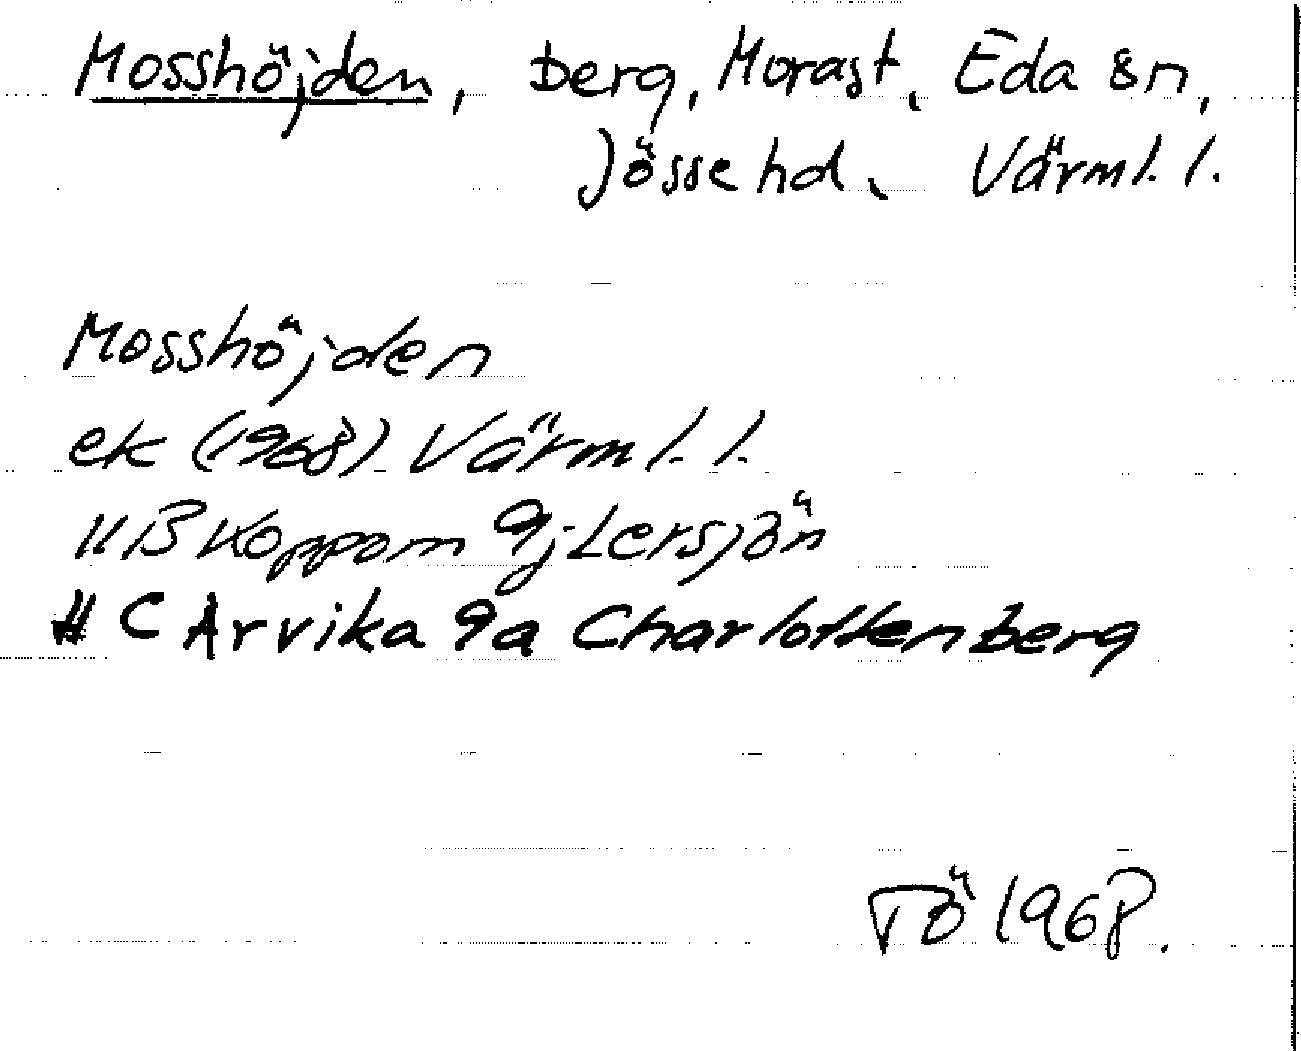 Mosshöjden, berg, Morast, Eda sn,
Jösse hd. Värml. l.
Mosshöjden
ek (1968) Värml. l.
11B Koppom 9j Lersjön
11 C Arvika 9a Charlottenberg
TÖ 1968.